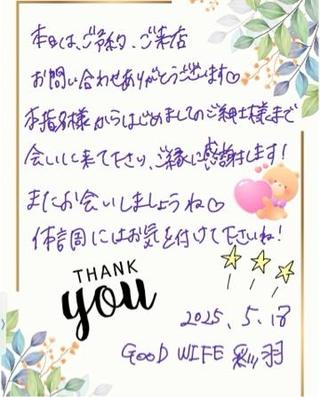 本日は、ご予約、ご来店
お問い合わせありがとうございます♡
本指名様からはじめましてのご紳士様まで
会いに来て下さり、ご縁に感謝します!
またお会いしましょうね♡
体調にはお気を付けて下さいね!
THANK
you
2025.5.18
GOOD WIFE 彩羽